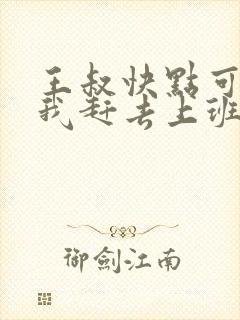 王叔快點可
我赶去上班
御劍江南